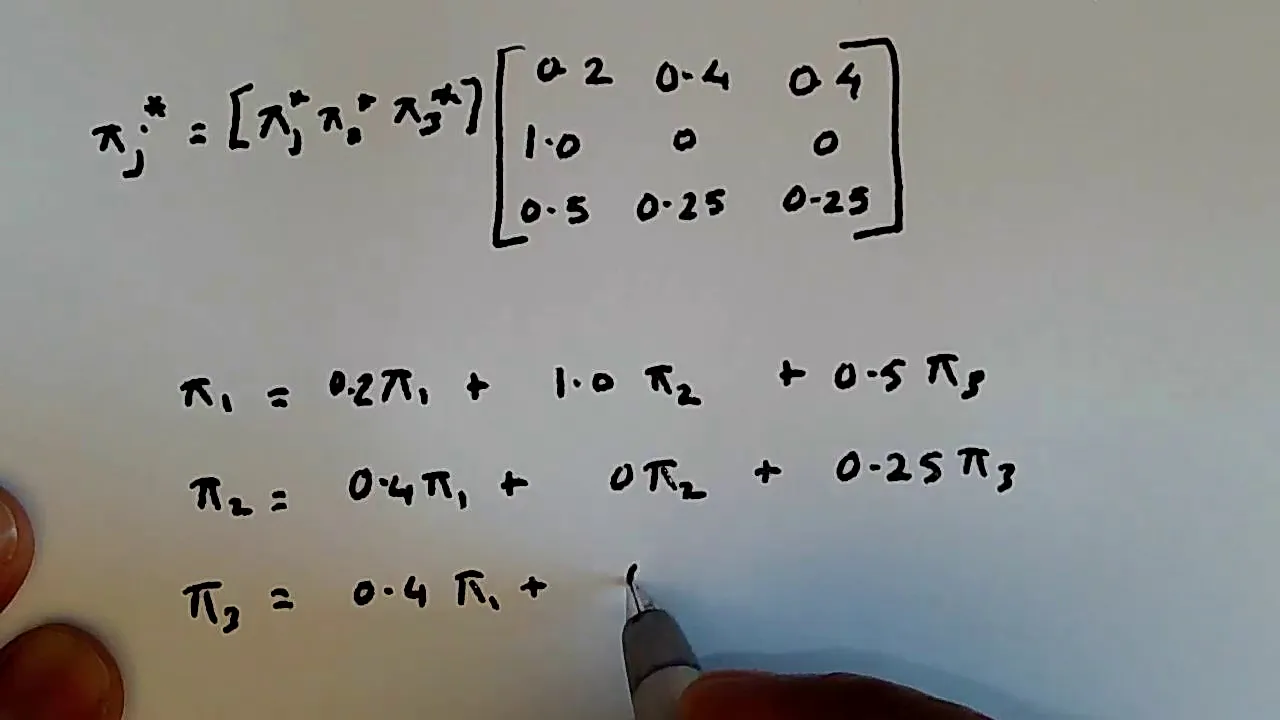 πj* = [πj* π2* π3*] [0.2 0.4 0.4
1.0 0 0
0.5 0.25 0.25]
π1 = 0.2π1 + 1.0 π2 + 0.5 π3
π2 = 0.4π1 + 0π2 + 0.25 π3
π3 = 0.4 π1 +